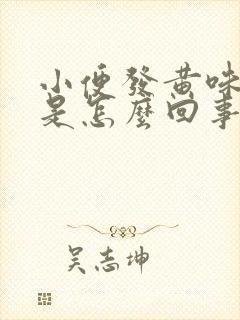 小便發黃味
是怎麼回事
吴志坤